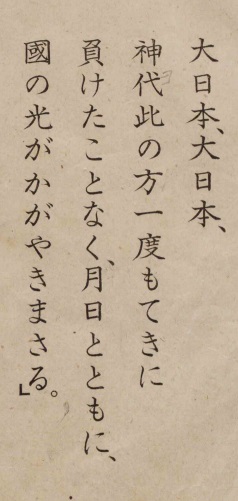 大日本、大日本、
神代此の方一度もてきに
負けたことなく、月日とともに、
國の光がかがやきまさる。」